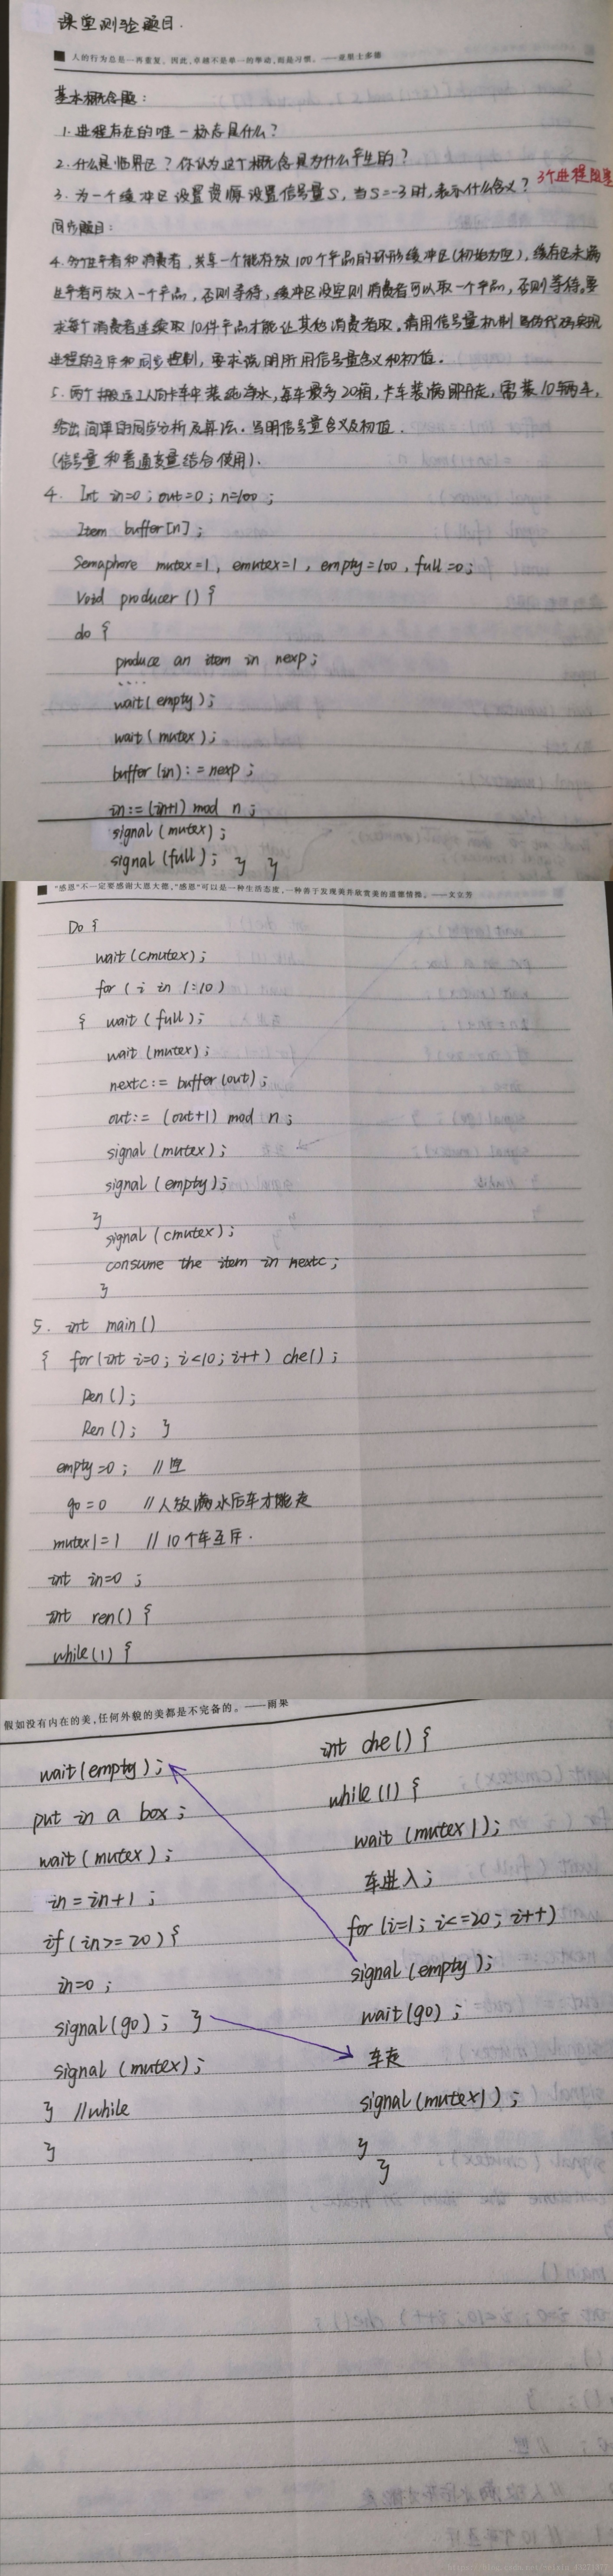 课堂测验题目.
人的行为总是一再重复。因此,卓越不是单一的举动,而是习惯。——亚里士多德
基本概念题:
1. 进程存在的唯一标志是什么?
2. 什么是临界区?你认为这个概念是为什么产生的?
3. 为一个缓冲区设置资源设置信号量S,当S=-3时,表示什么含义? 3个进程阻塞
同步题目:
4. 多个生产者和消费者,共享一个能存放100个产品的环形缓冲区(初始为空),缓存区未满
生产者可放入一个产品,否则等待,缓冲区没空则消费者可以取一个产品,否则等待。要
求每个消费者连续取10件产品才能让其他消费者取。请用信号量机制写伪代码实现
进程的互斥和同步控制,要求说明所用信号量含义和初值.
5. 两个搬运工人向卡车中装纯净水,每车最多20箱,卡车装满即开走,需装10辆车,
给出简单的同步分析及算法.写明信号量含义及初值.
(信号量和普通变量结合使用).
4. Int in=0; out=0; n=100;
Item buffer[n];
Semaphore mutex=1, cmutex=1, empty=100, full=0;
Void producer() {
do {
produce an item in nexp;
....
wait(empty);
wait(mutex);
buffer(in):=nexp;
in:=(in+1) mod n;
signal(mutex);
signal(full); } }
"感恩"不一定要感谢大恩大德,"感恩"可以是一种生活态度,一种善于发现美并欣赏美的道德情操。——艾立芳
Do {
wait(cmutex);
for (i in 1:10)
{ wait(full);
wait(mutex);
nextc:= buffer(out);
out:= (out+1) mod n;
signal(mutex);
signal(empty);
}
signal(cmutex);
consume the item in nextc;
}
5. int main()
{ for(int i=0; i<10; i++) che();
Ren();
Ren(); }
empty=0; //空
go=0 //人放满水后车才能走
mutex1=1 //10个车互斥.
int in=0;
int ren() {
while(1) {
假如没有内在的美,任何外貌的美都是不完备的。——雨果
wait(empty);
put in a box;
wait(mutex);
in=in+1;
if(in>=20) {
in=0;
signal(go); }
signal(mutex);
} //while
}
int che() {
while(1) {
wait(mutex1);
车进入;
for(i=1; i<=20; i++)
signal(empty);
wait(go);
车走
signal(mutex1);
}
}